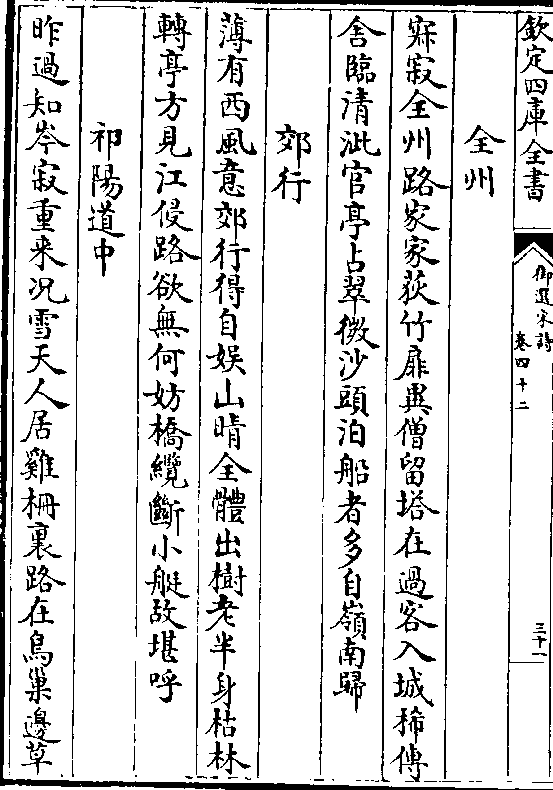 欽定四庫全書
御選宋詩
卷四十二
三十一
全州
寂寂全州路家家荻竹扉異僧留塔在過客入城稀傳
舍臨清泚官亭占翠微沙頭泊船者多自嶺南歸
郊行
薄有西風意郊行得自娱山晴全體出樹老半身枯林
轉亭方見江侵路欲無何妨橋纜斷小艇故堪呼
祁陽道中
昨過知岑寂重来况雪天人居雞柵裏路在鳥巢邊草